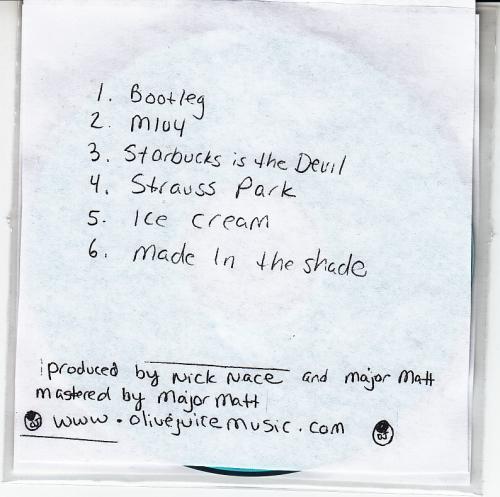 1. Bootleg
2. M104
3. Starbucks is the Devil
4. Strauss Park
5. Ice cream
6. Made In the shade
produced by Nick Nace and Major Matt
mastered by Major Matt
www.olivejuicemusic.com